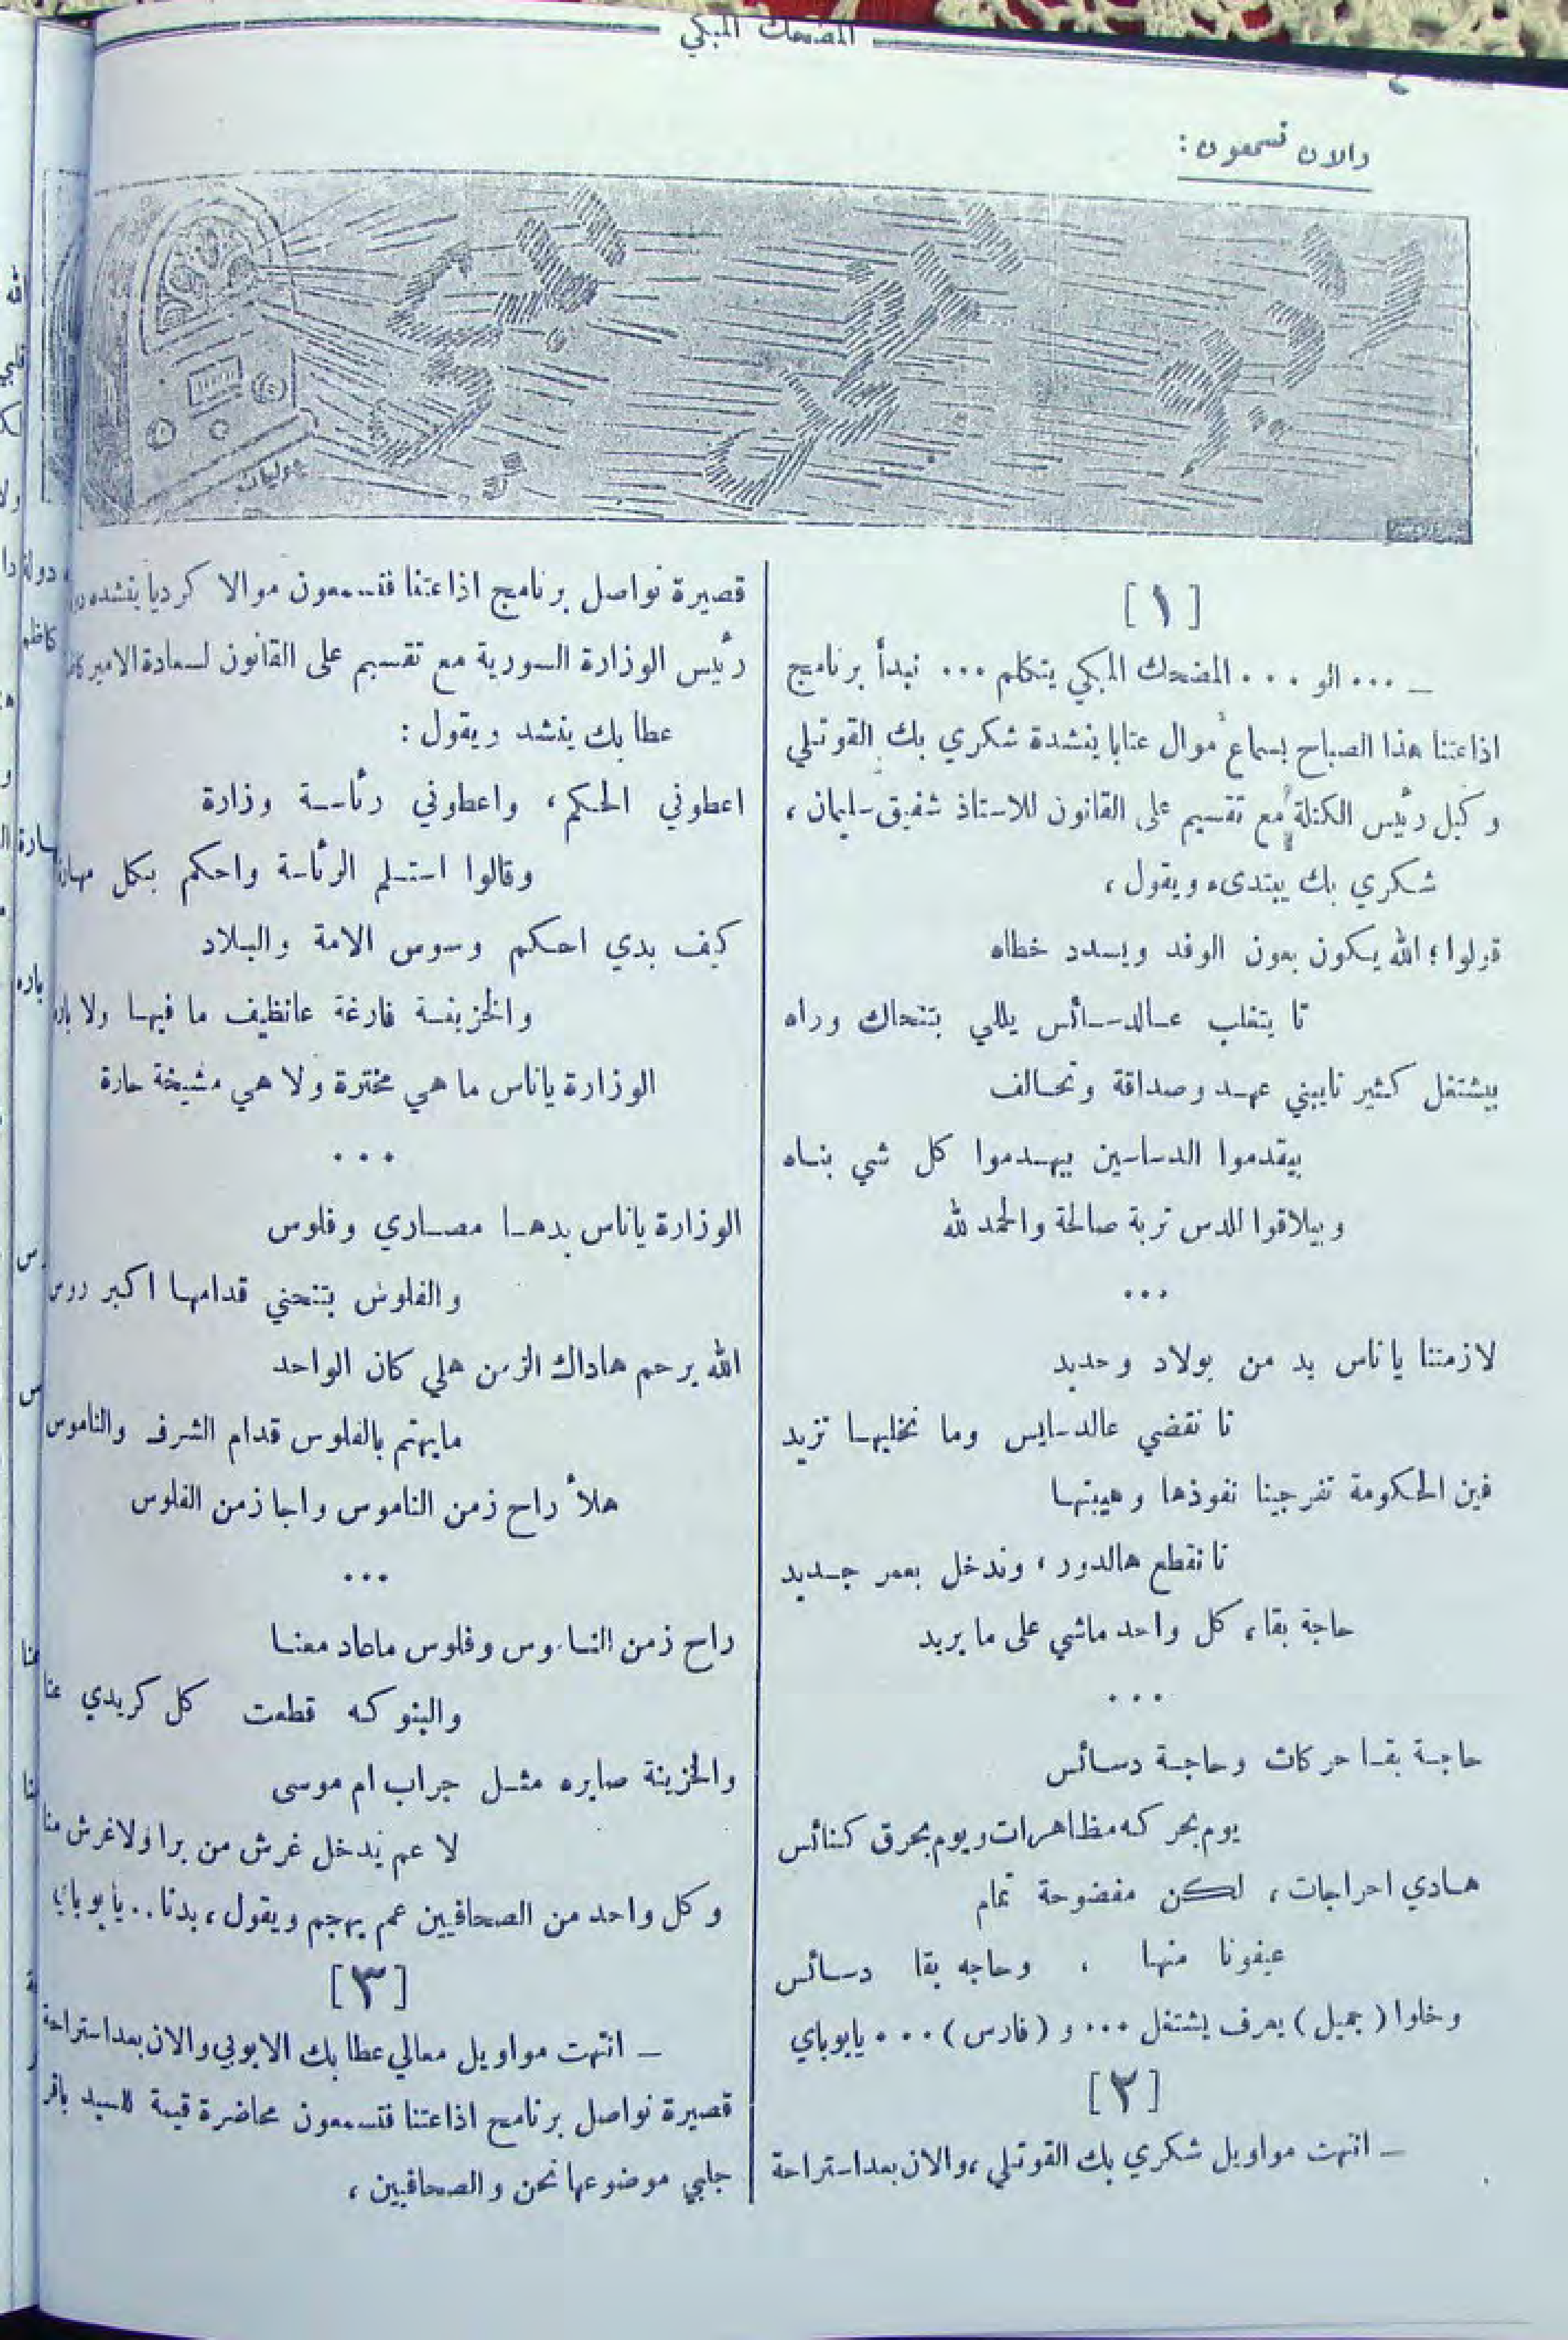 المضحك المبكي
والان تسمعون :
[١]
_ ... الو ... المضحك المبكي يتكلم ... نبدأ برنامج
اذاعتنا هذا الصباح بسماع موال عتابا ينشدة شكري بك القوتلي
وكيل رئيس الكتلة مع تقسيم على القانون للاستاذ شفيق سليمان ،
شكري بك يبتدىء ويقول ،
قولوا ؛ الله يكون بعون الوفد ويسدد خطاه
تا يتغلب عـالدسـائس يللي بتنحاك وراه
بيشتغل كثير تايبني عهـد وصداقة وتحـالف
بيقدموا الدساسين بيهـدموا كل شي بنـاه
وبيلاقوا للدس تربة صالحة والحمد لله
...
لازمتنا يا ناس يد من بولاد وحديد
تا نقضي عالدسايس وما نخليهـا تزيد
فين الحكومة تفرجينا نفوذها وهيبتهـا
تا نقطع هالدور ، وندخل بعمر جـديد
حاجة بقا ، كل واحد ماشي على ما يريد
...
حاجـة بقـا حركات وحاجـة دسـائس
يوم بحركه مظاهرات ويوم بحرق كنائس
هـادي احراجات ، لكن مفضوحة تمام
عيفونا منهـا ، وحاجه بقا دسـائس
وخلوا ( جميل ) يعرف يشتغل ... و ( فارس ) ... يابوباي
[٢]
_ انتهت مواويل شكري بك القوتلي ، والان بعد استراحة
قصيرة نواصل برنامج اذاعتنا فتسمعون موالا كرديا ينشده
رئيس الوزارة السورية مع تقسيم على القانون لسعادة الامير
عطا بك ينشد ويقول :
اعطوني الحـكم ، واعطوني رئاسـة وزارة
وقالوا استـلم الرئاسة واحكم بكل مهارة
كيف بدي احـكم وسوس الامة والبـلاد
والخزينـة فارغة عانظيف ما فيهـا ولا باره
الوزارة ياناس ما هي مخترة ولا هي مشيخة حارة
...
الوزارة ياناس بدهـا مصـاري وفلوس
والفلوس بتنحني قدامهـا اكبر روس
الله يرحم هاداك الزمن هلي كان الواحد
مايهتم بالفلوس قدام الشرف والناموس
هلأ راح زمن الناموس واجا زمن الفلوس
...
راح زمن الناموس وفلوس ماعاد معنـا
والبنوكه قطعت كل كريدي عنا
والخزينة صايره مثـل جراب ام موسى
لا عم يدخل غرش من برا ولا غرش منا
وكل واحد من الصحافيين عم يهجم ويقول ، بدنا .. يابوباي
[٣]
_ انتهت مواويل معالي عطا بك الايوبي والان بعد استراحة
قصيرة نواصل برنامج اذاعتنا فتسمعون محاضرة قيمة للسيد باقر
جلبي موضوعها نحن والصحافيين ،